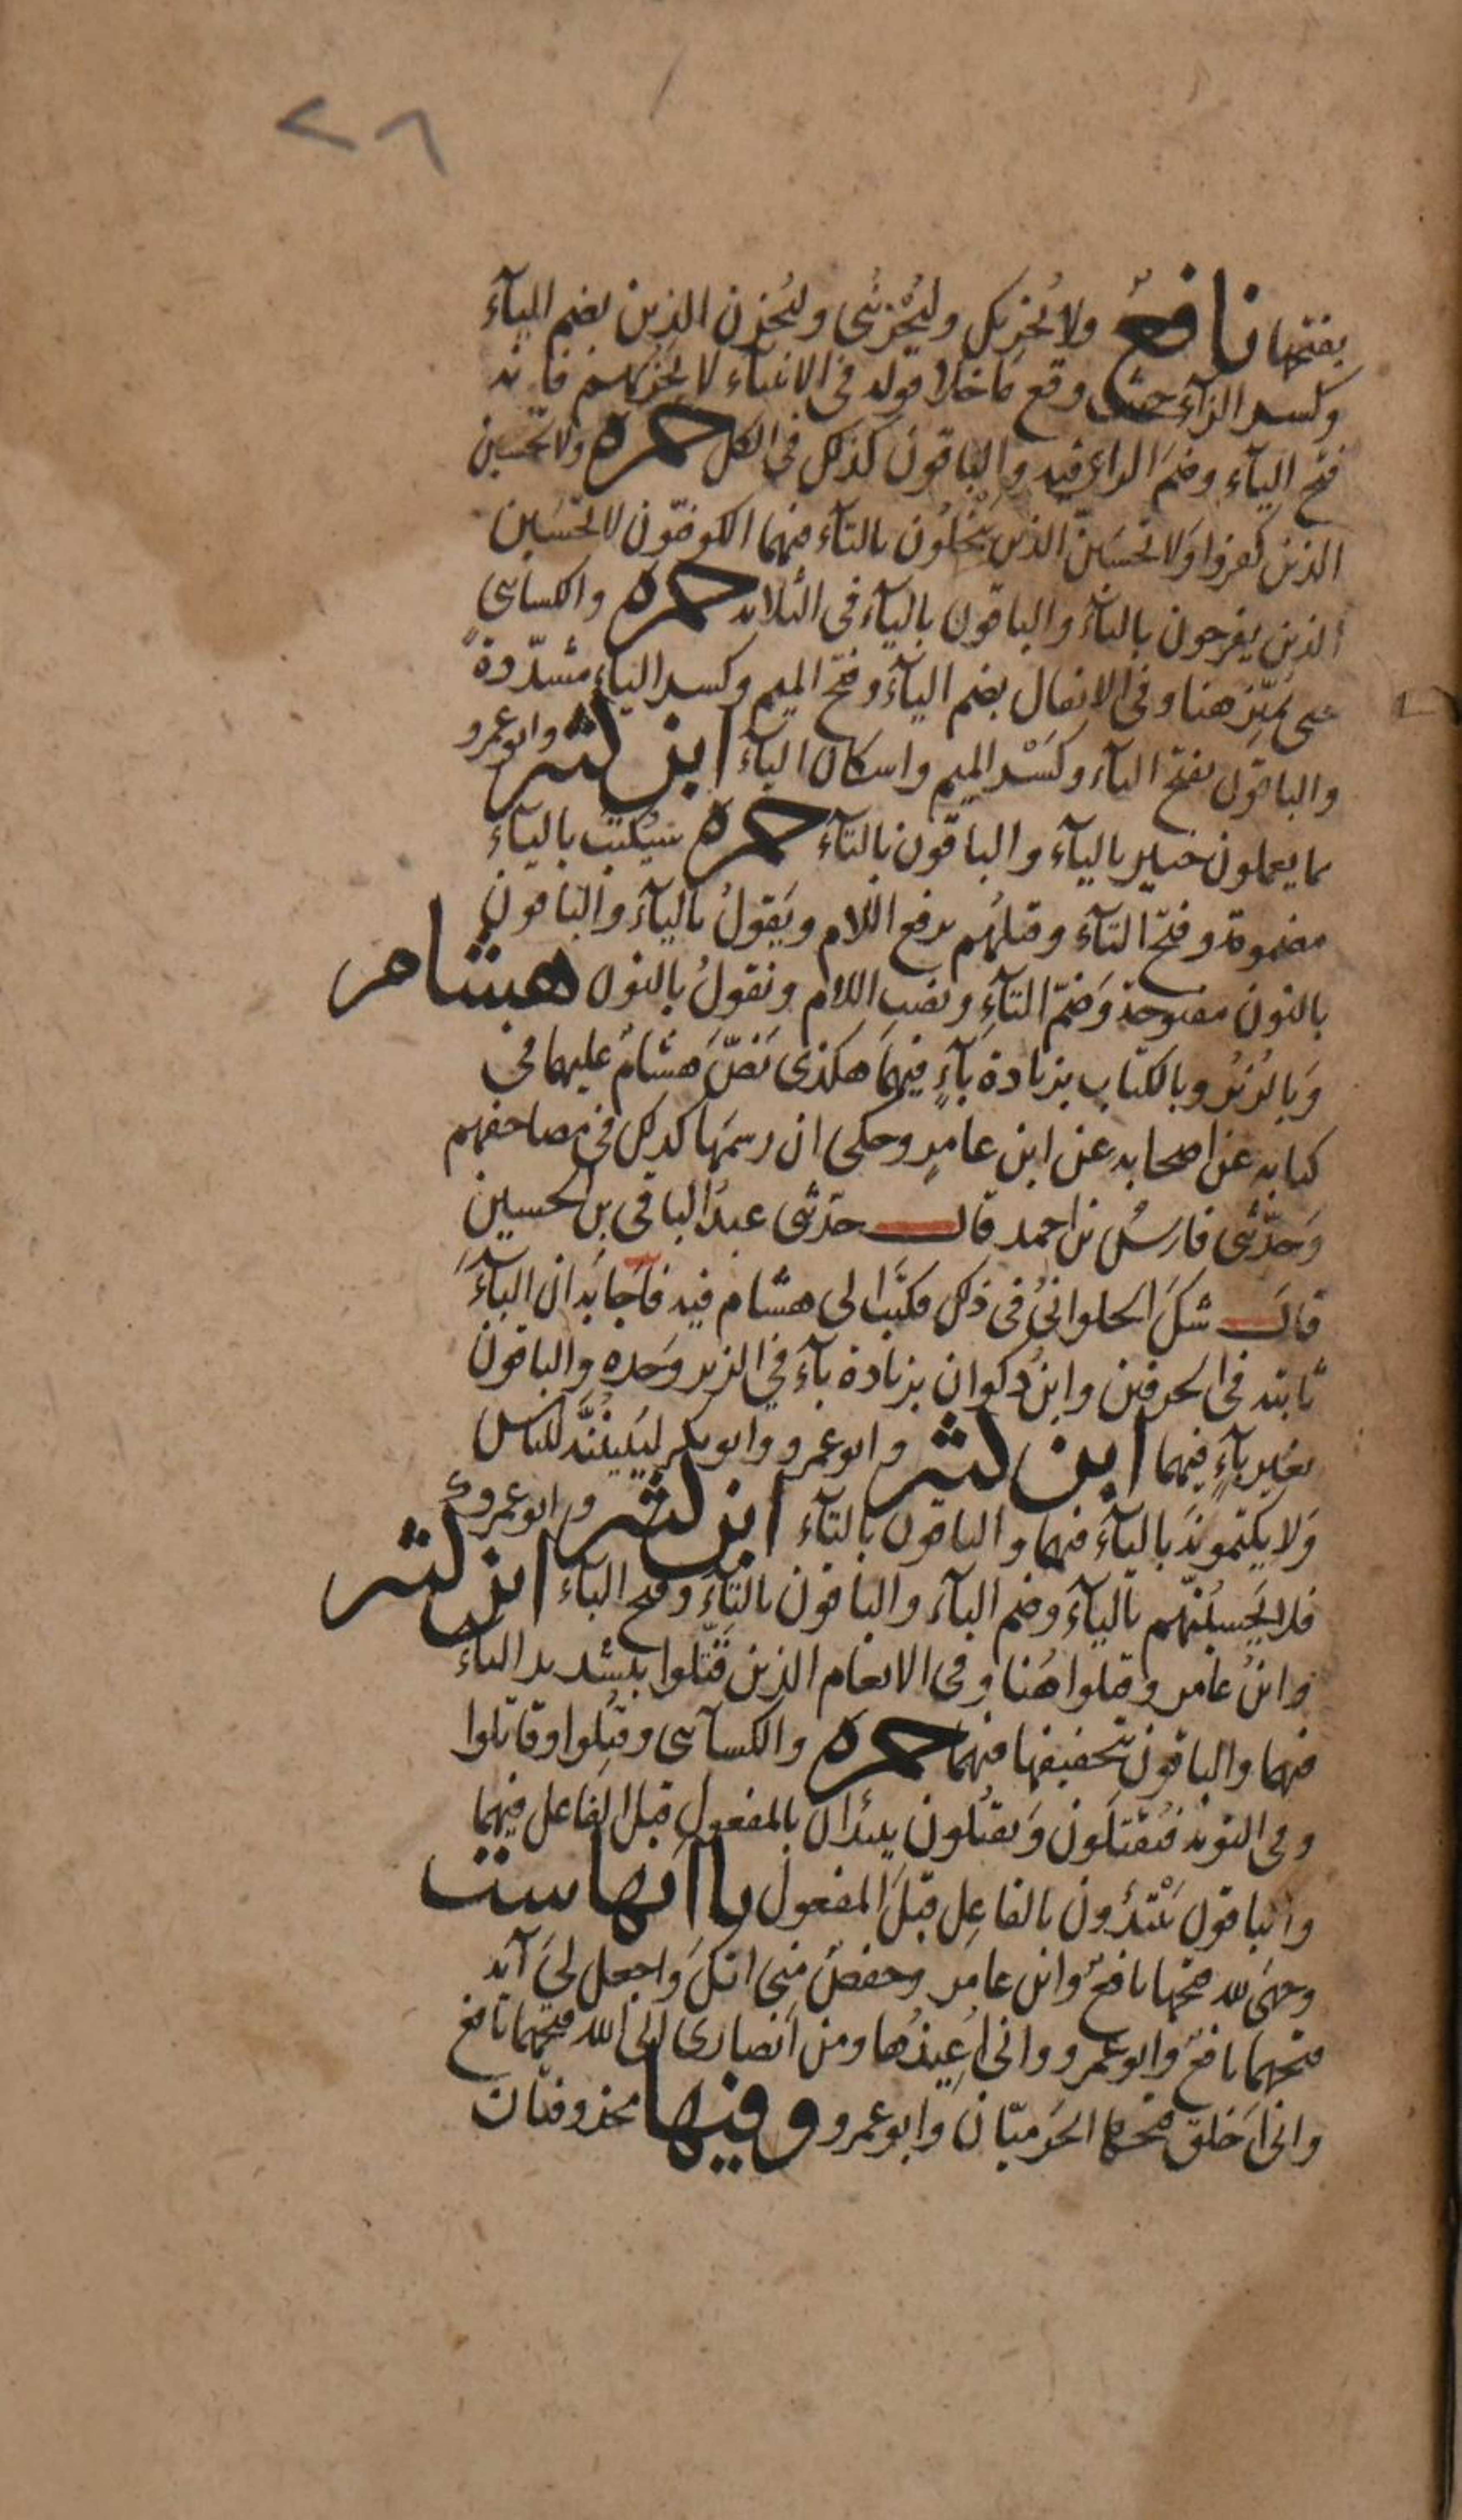 ٢٨
بفتحها نافعٌ ولا يُحزِنك وليُحْزِننى وليُحزِن الذين بضم اليآء
وكسر الزآء حيث وقع ما خلا قوله فى الانبيآء لا يحزنهم فانه
فتح اليآء وضم الزاى فيه والباقون كذلك فى الكل حمزه ولا تحسبن
الذين كفروا ولا تحسبنّ الذين يبخلون بالتآء فيهما الكوفيّون لا تحسبن
الذين يفرحون بالتآء والباقون باليآء فى الثلاثه حمزه والكسائى
حتى يُمَيِّز هنا وفى الانفال بضم اليآء وفتح الميم وكسر اليآء مشدّدةً
والباقون بفتح اليآء وكَسْر الميم واسكان اليآء ابن كثير وابو عمرو
بما يعملون خبير باليآء والباقون بالتآء حمزه سَيُكتَب باليآء
مضمومة وفتح التآء وقتلُهُم برفع اللام ويَقولُ باليآء والباقون
بالنون مفتوحة وضمّ التآءِ ونصب اللام ونقولُ بالنون هشام
وبالزُبُر وبالكتاب بزيادة بآءٍ فيهما هكذى نَصَّ هشامٌ عليهما فى
كتابه عن اصحابه عن ابن عامرٍ وحكى ان رسمهما كذلك فى مصاحفهم
وَحَدّثنى فارسُ بن احمد قال حدّثنى عبدُ الباقى بن الحسين
قال شكَّ الحلوانىُّ فى ذلك فكتب الى هشام فيه فاَجابَه ان البآءَ
ثابته فى الحرفين وابنُ ذكوان بزيادة بآءَ فى الزبر وَحده والباقون
بغير بآءٍ فيهما ابن كثير وابو عمرو وابو بكر ليُبَيِّنُنَّه للناس
وَلا يكتمونَه باليآء فيهما والباقون بالتآء ابن كثير وابو عمرو
فلا يَحسبُنّهم باليآء وضم البآء والباقون بالتآءِ وفتح البآء ابن كثير
وابنُ عامر وقتلوا هُنا وفى الانعام الذين قَتّلوا بتشديد التآء
فيهما والباقون بتخفيفها فيهما حمزه والكسآئى وقُتِلوا وقاتلوا
وفى التوبه فيُقتَلون وَيَقتُلون يبدَآن بالمفعول قبل الفاعل فيهما
والباقون يَبْتَدؤن بالفاعِل قبلَ المفعول يااتها ست
وجهىَ لله فتحها نافعٌ وابن عامر وحفصٌ منى انكَ وَاجعل لىَ آية
فتحهما نافعٌ وابو عمرو وانى اُعِيذُها ومن اَنصارى الى الله فتحهما نافع
وانى اَخلق فتحها الحَرميّان وابو عمرو وفيها محذوفتان